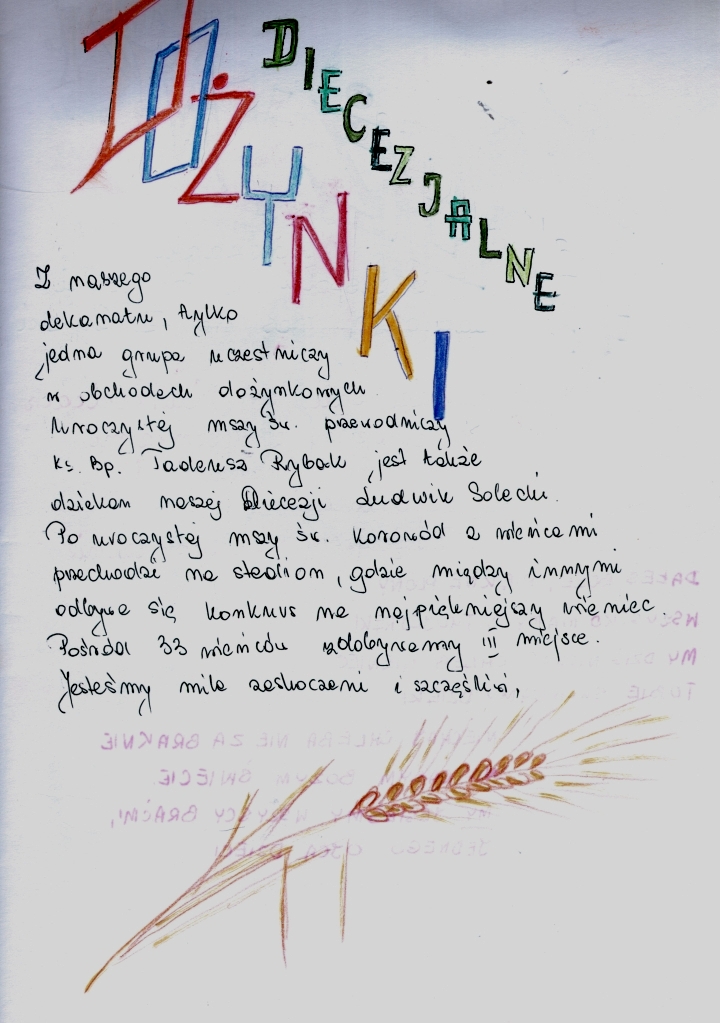 DOŻYNKI
DIECEZJALNE
Z naszego
dekanatu, tylko
jedna grupa uczestniczy
w obchodach dożynkowych
Uroczystej mszy św. przewodniczy
ks. Bp. Tadeusz Rybak jest także
dziekan naszej Diecezji Ludwik Solecki.
Po uroczystej mszy św. korowód z wieńcami
przechodzi na stadion, gdzie między innymi
odbywa się konkurs na najpiękniejszy wieniec.
Pośród 33 wieńców zdobywamy III miejsce.
Jesteśmy mile zaskoczeni i szczęśliwi,
CHLEBA NIE ZABRAKNIE
BOŻYM ŚWIECIE
WSZYSCY BRAĆMI,
JEDNEGO OJCA DZIECI